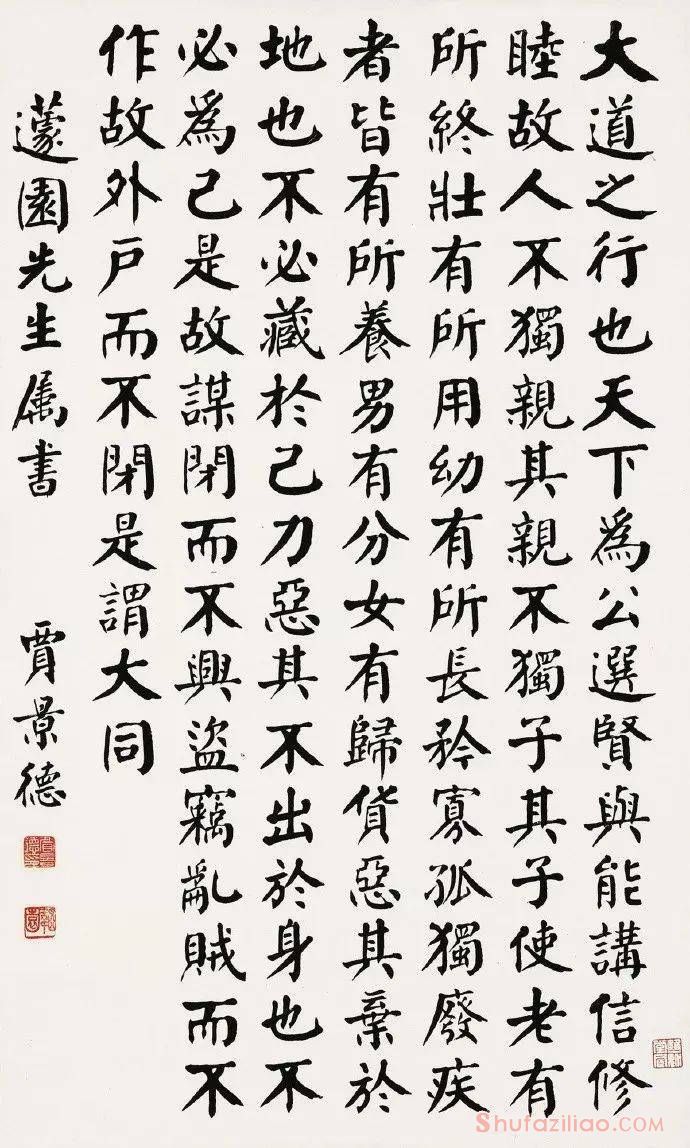 大道之行也天下為公選賢與能講信修
睦故人不獨親其親不獨子其子使老有
所終壯有所用幼有所長矜寡孤獨廢疾
者皆有所養男有分女有歸貨惡其棄於
地也不必藏於己力惡其不出於身也不
必為己是故謀閉而不興盜竊亂賊而不
作故外戶而不閉是謂大同
蘧園先生属書
賈景德
Shufaziliao.com